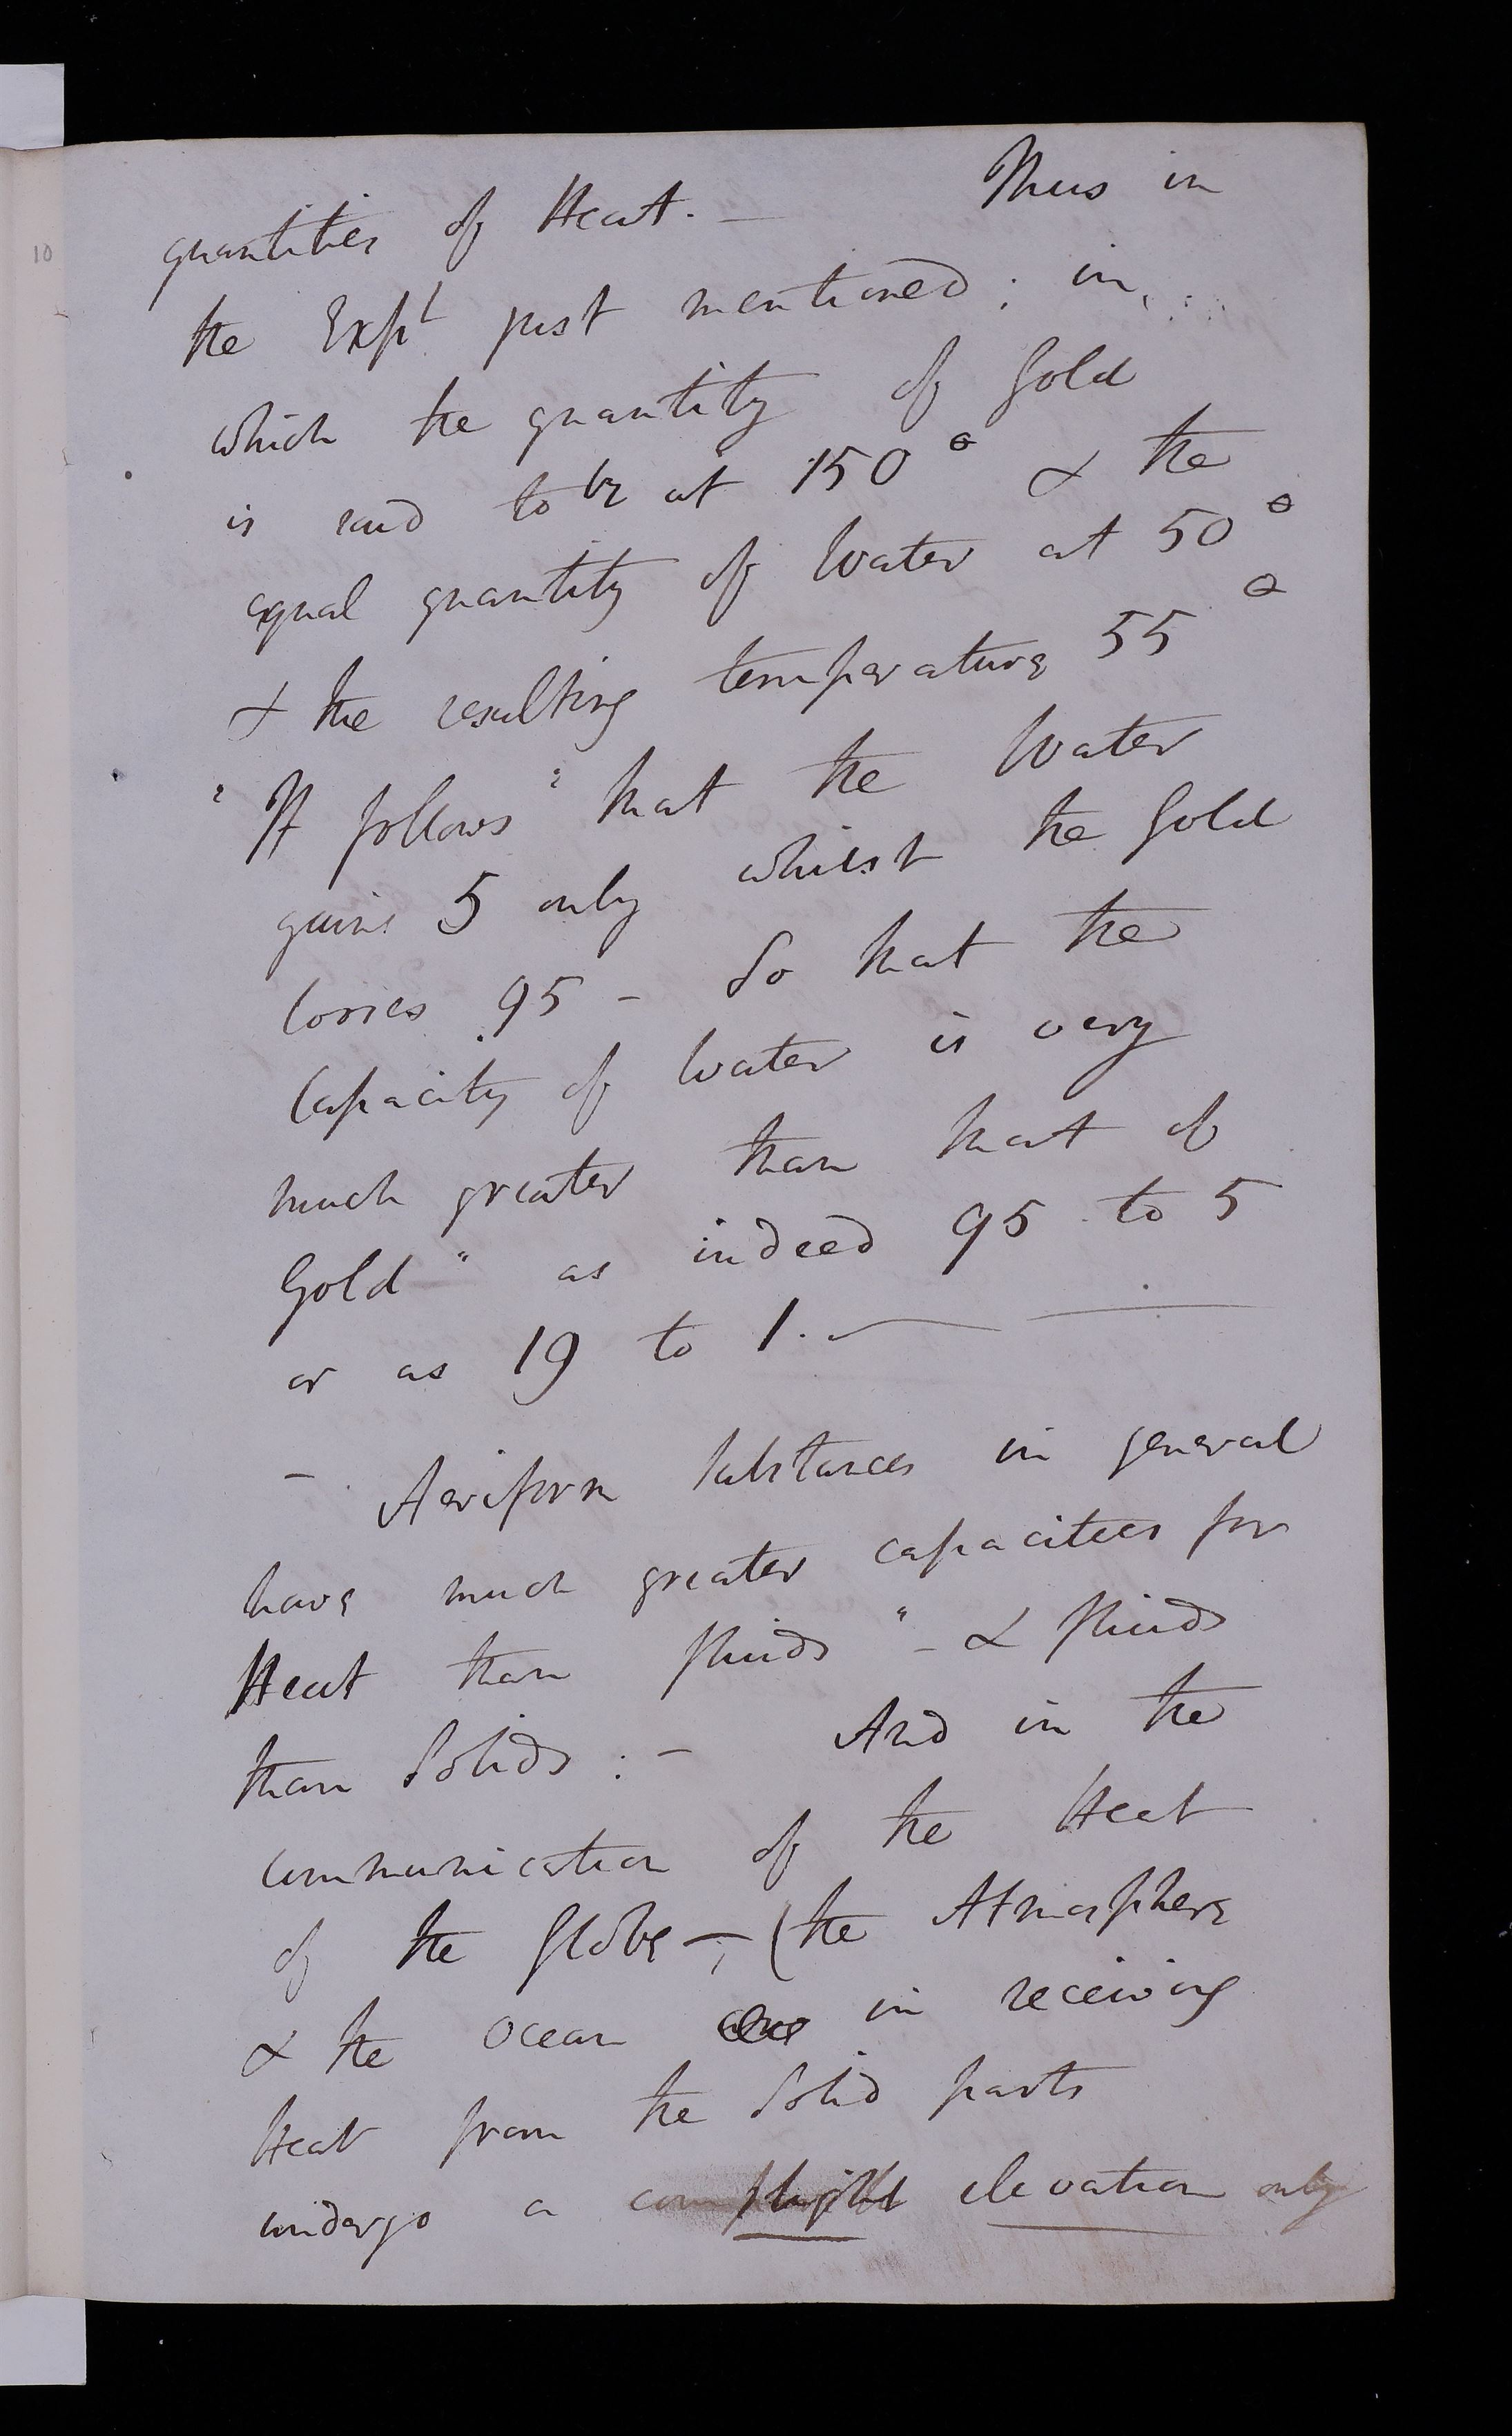 quantities of Heat. — Thus in
the Expt just mentioned; in
which the quantity of Gold
is said to be at 150° & the
equal quantity of Water at 50°
& the resulting temperature 55°
"It follows" that the Water
gains 5 only whilst the Gold
looses 95 – So that the
Capacity of Water is very
much greater than that of
Gold" as indeed 95 to 5
or as 19 to 1. —
– Aeriform substances in general
have much greater capacities for
Heat than fluids" – & fluids
than Solids: – And in the
communication of the Heat
of the Globe –; (the Atmosphere
& the Ocean in receiving
Heat from the Solid parts
undergo a slight elevation only
10